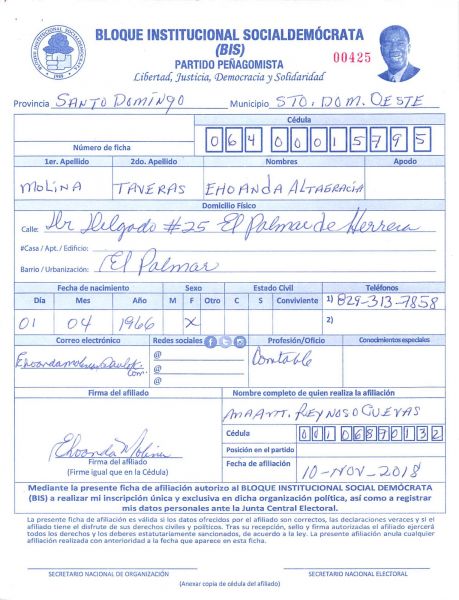 BLOQUE INSTITUCIONAL SOCIALDEMÓCRATA
(BIS)
PARTIDO PEÑAGOMISTA
00425
Libertad, Justicia, Democracia y Solidaridad
Provincia SANTO DOMINGO Municipio STO. DOM. OESTE
Cédula
Número de ficha 06400015795
1er. Apellido 2do. Apellido Nombres Apodo
MOLINA TAVERAS EHOANDA ALTAGRACIA
Domicilio Físico
Calle: Dr Delgado #25 El Palmar de Herrera
#Casa / Apt. / Edificio:
Barrio / Urbanización: El Palmar
Fecha de nacimiento Sexo Estado Civil Teléfonos
Día Mes Año M F Otro C S Conviviente 1) 829-313-7858
01 04 1966 X 2)
Correo electrónico Redes sociales Profesión/Oficio Conocimientos especiales
@ Contable
@
@
Firma del afiliado Nombre completo de quien realiza la afiliación
REYNOSO CUEVAS
Cédula 00106870132
Ehoanda Molina
Posición en el partido
Firma del afiliado
(Firme igual que en la Cédula)
Fecha de afiliación 10-NOV-2018
Mediante la presente ficha de afiliación autorizo al BLOQUE INSTITUCIONAL SOCIAL DEMÓCRATA
(BIS) a realizar mi inscripción única y exclusiva en dicha organización política, así como a registrar
mis datos personales ante la Junta Central Electoral.
La presente ficha de afiliación es válida si los datos ofrecidos por el afiliado son correctos, las declaraciones veraces y si el
afiliado tiene el disfrute de sus derechos civiles y políticos. Tras su recepción, sello y firma autorizadas el afiliado ejercerá
todos los derechos y los deberes estatutariamente sancionados, de acuerdo a la ley. La presente afiliación anula cualquier
afiliación realizada con anterioridad a la fecha que aparece en esta ficha.
SECRETARIO NACIONAL DE ORGANIZACIÓN SECRETARIO NACIONAL ELECTORAL
(Anexar copia de cédula del afiliado)